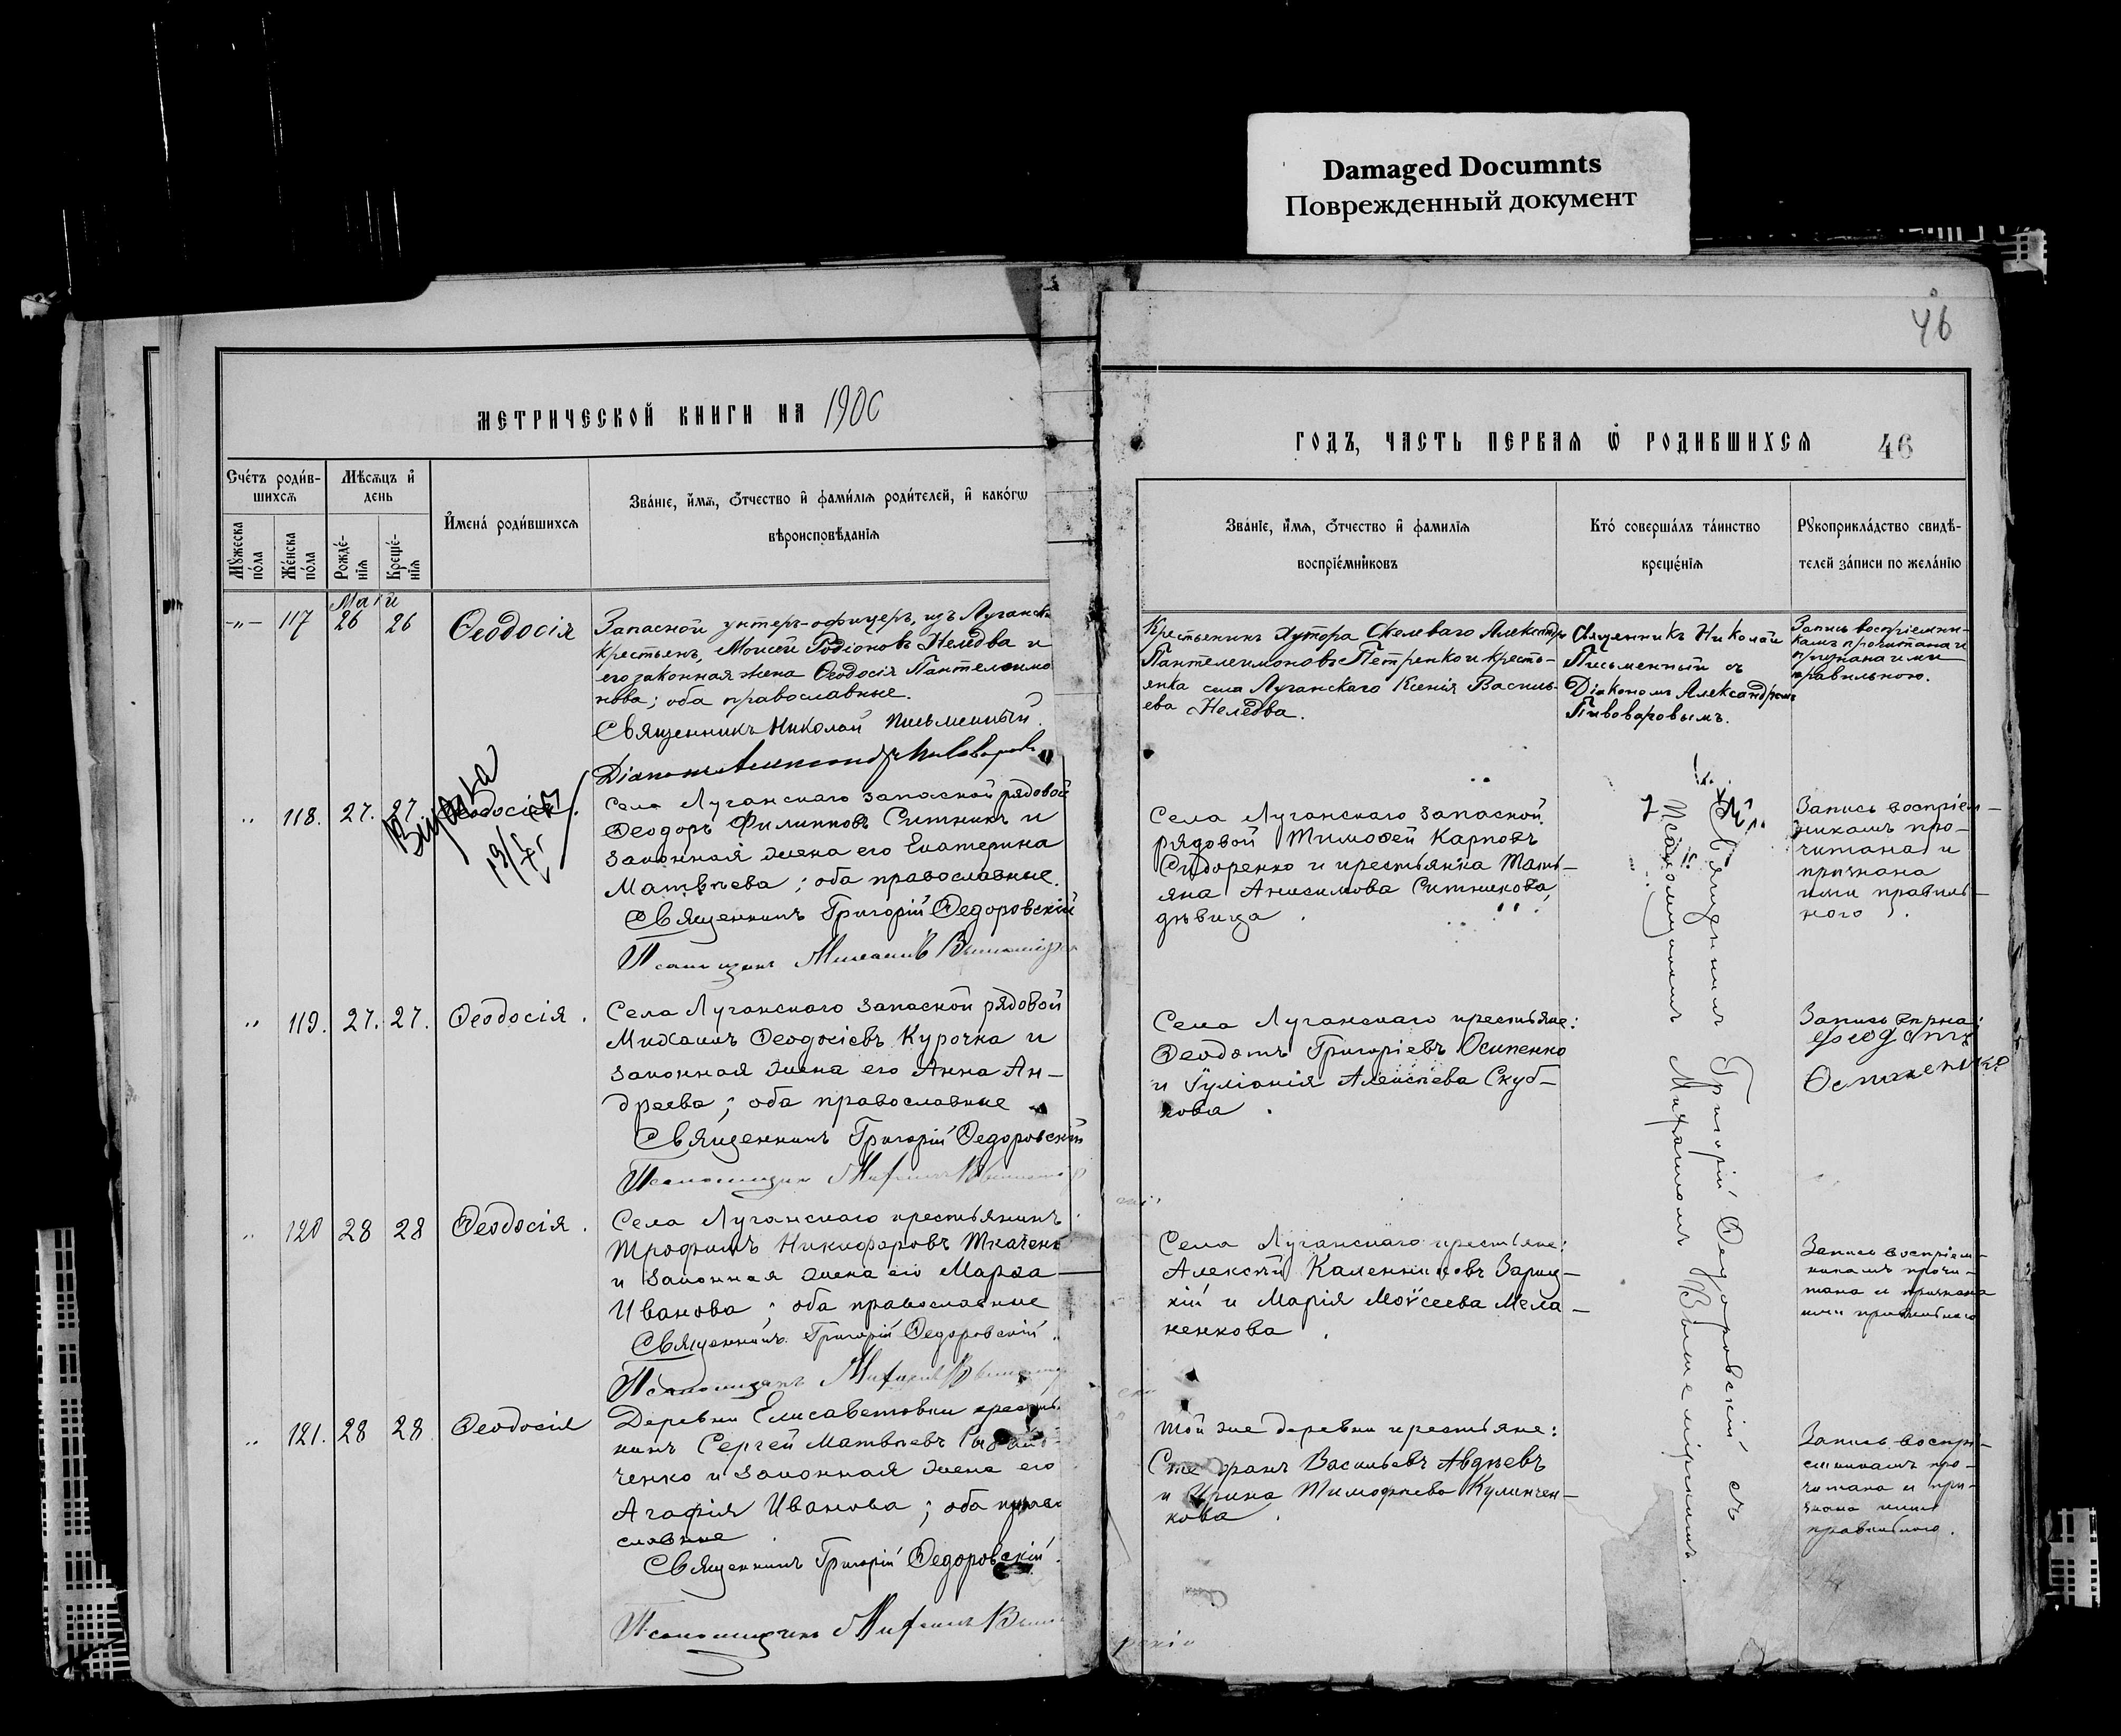 Damaged Documnts
Поврежденный документ
46
МЕТРИЧЕСКОЙ КНИГИ НА 1900
ГОДЪ, ЧАСТЬ ПЕРВАѦ Ѡ РОДИВШИХСѦ 46
Сче́тъ роди́в-
шихсѧ
Мѣсѧцъ и҆
день
Мꙋ́жеска
по́ла
Же́нска
по́ла
Рожде́-
нїѧ
Креще́-
нїѧ
И҆мена̀ роди́вшихсѧ
Зва́нїе, и҆́мѧ, ѻ҆́тчество и҆ фами́лїѧ роди́телей, и҆ како́гѡ
вѣроисповѣ́данїѧ
Зва́нїе, и҆́мѧ, ѻ҆́тчество и҆ фами́лїѧ
воспрїе́мникѡвъ
Кто̀ соверша́лъ та́инство
креще́нїѧ
Рꙋкоприкла́дство свидѣ́-
телей за́писи по жела́нїю
Май
-"- 117 26 26 Ѳеодосія
Запасной унтеръ-офицеръ, изъ Луганск
крестьянъ, Моисей Родіоновъ Неледва и
его законная жена Ѳеодосія Пантелеимо
нова; оба православные.
Священникъ Николай Письменный.
Діаконъ Александръ Пивоваровъ
Крестьянинъ хутора Скелеваго Александръ
Пантелеимоновъ Петренко и кресть-
янка села Луганскаго Ксенія Василь-
ева Неледва.
Священникъ Николай
Письменный съ
Діакономъ Александромъ
Пивоваровымъ.
Запись воспріемни-
камъ прочитана и
признана ими
правильною.
" 118. 27. 27. Ѳеодосія.
Села Луганскаго запасной рядовой
Ѳеодоръ Филипповъ Ситникъ и
законная жена его Екатерина
Матвѣева; оба православные.
Священникъ Григорій Ѳедоровскій
Псаломщикъ Михаилъ
Села Луганскаго запасной
рядовой Тимоѳей Карповъ
Сидоренко и крестьянка Тать-
яна Анисимова Ситникова,
дѣвица.
Священникъ Григорій Ѳедоровскій съ
Псаломщикомъ Михаиломъ Вышемірскимъ.
Запись воспріем-
никамъ про-
читана и
признана
ими правиль-
ного.
" 119. 27. 27. Ѳеодосія.
Села Луганскаго запасной рядовой
Михаилъ Ѳеодосіевъ Курочка и
законная жена его Анна Ан-
дреева; оба православные
Священникъ Григорій Ѳедоровскій
Псаломщикъ Михаилъ
Села Луганскаго крестьяне:
Ѳеодотъ Григоріевъ Осипенко
и Іуліанія Алексѣева Скуб-
кова.
Запись вѣрна:
Ѳеодотъ
Осипенко
" 120 28 28 Ѳеодосія.
Села Луганскаго крестьянинъ
Трофимъ Никифоровъ Ткаченк
и законная жена его Марѳа
Иванова; оба православные
Священникъ Григорій Ѳедоровскій.
Псаломщикъ Михаилъ
Села Луганскаго крестьяне:
Алексѣй Каленниковъ Зариц-
кій и Марія Моѵсеева Мела-
ненкова.
Запись воспріем-
никамъ прочи-
тана и признана
ими правильного
" 121. 28 28 Ѳеодосія
Деревни Елисаветовки кресть-
нинъ Сергей Матвѣевъ
ченко и законная жена его
Агафія Иванова; оба право
славные.
Священникъ Григорій Ѳедоровскій.
Псаломщикъ Михаилъ
Той же деревни крестьяне:
Стефанъ Васильевъ Авдѣевъ
и Ирина Тимофѣева Кулинчен-
кова.
Запись воспрі-
емникамъ про-
читана и при-
знана ими
правильного.